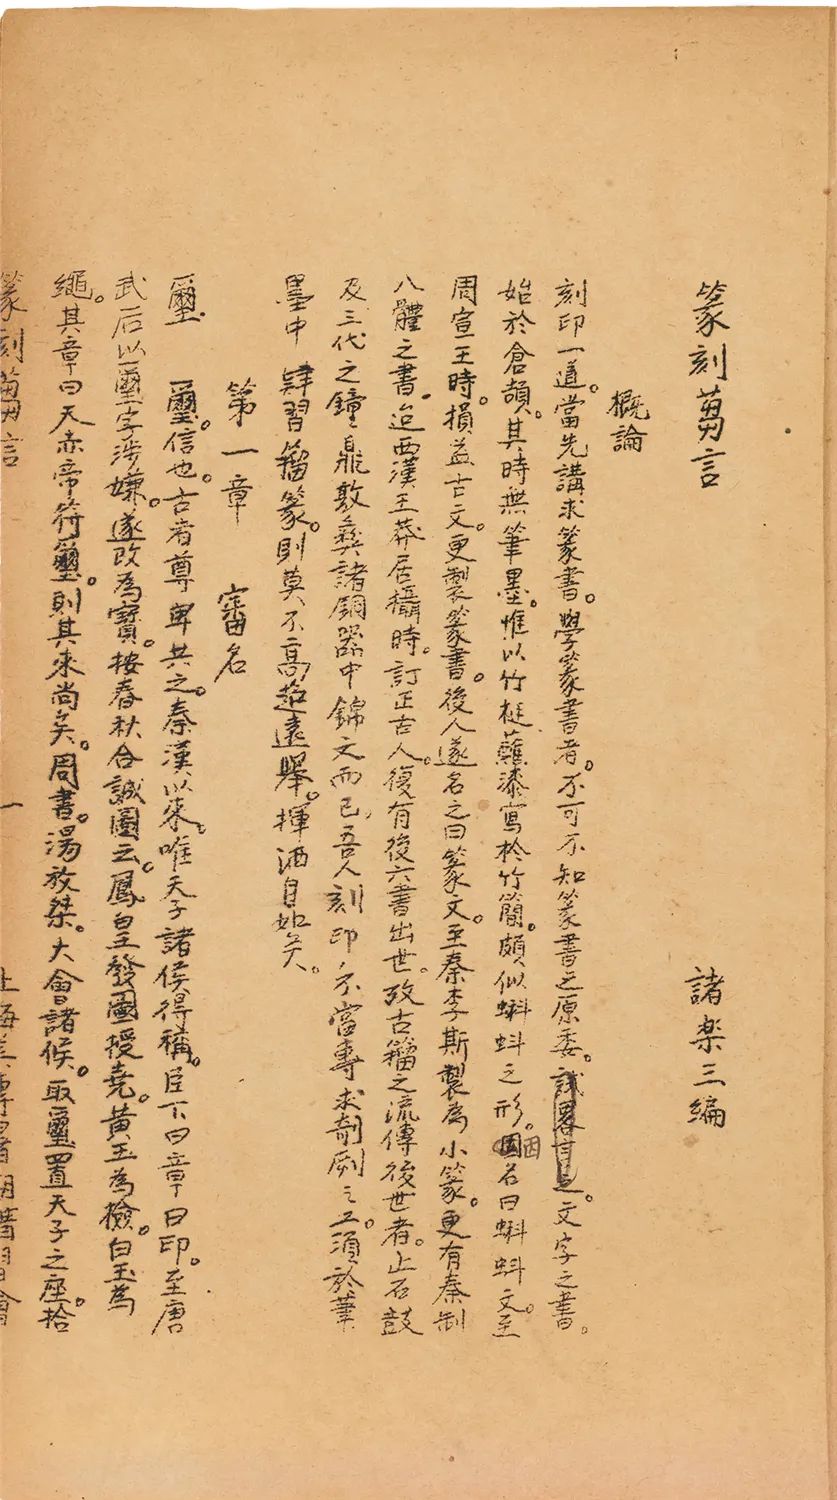 篆刻萬言　諸樂三編
概論
刻印一道。當先講求篆書。學篆書者。不可不知篆書之原委。試畧言之。文字之書。
始於倉頡。其時無筆墨。惟以竹梃蘸漆寫於竹簡。頗似蝌蚪之形。因名曰蝌蚪文。至
周宣王時。損益古文。更製篆書。後人遂名之曰篆文。至秦李斯製為小篆。更有秦制
八體之書。迨西漢王莽居攝時。訂正古人。復有後六書出世。攷古籀之流傳後世者。止石鼓
及三代之鐘鼎敦彝諸銅器中錦文而已，吾人刻印，不當專求剞劂之工。須於筆
墨中肄習籀篆。則莫不高超遠舉。揮洒自如矣。
第一章　審名
璽　璽。信也。古者尊卑共之。秦漢以來。唯天子諸侯得稱。臣下曰章曰印。至唐
武后以璽字涉嫌。遂改為寶。按春秋合誠圖云。鳳皇發圖授堯。黃玉為檢。白玉為
繩。其章曰天赤帝符璽。則其來尚矣。周書。湯放桀。大會諸侯。取璽置天子之座。拾
篆刻萬言　一　上海美專